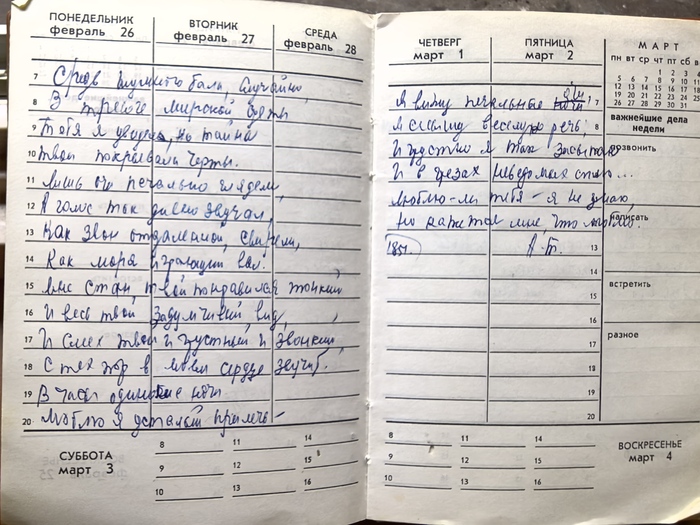 ПОНЕДЕЛЬНИК
февраль 26
ВТОРНИК
февраль 27
СРЕДА
февраль 28
7 Средь шумного бала, случайно,
8 В тревоге мирской суеты
9 Тебя я увидел, но тайна
10 Твои покрывала черты.
11 Лишь очи печально глядели,
12 А голос так дивно звучал,
13 Как звон отдаленной свирели,
14 Как моря играющий вал.
15 Мне стан твой понравился тонкий
16 И весь твой задумчивый вид,
17 И смех твой и грустный и звонкий
18 С тех пор в моем сердце звучит.
19 В часы одинокие ночи
20 Люблю я усталый прилечь –
СУББОТА
март 3
8 11 14
9 12 15
10 13 16
ЧЕТВЕРГ
март 1
ПЯТНИЦА
март 2
Я вижу печальные очи 7
Я слышу веселую речь; 8
И грустно я так засыпаю
И в грезах неведомых сплю...
Люблю-ли тебя – я не знаю,
Но кажется мне, что люблю.
1851. А.Т. 13
14
15
16
17
18
19
20
8 11 14
9 12 15
10 13 16
МАРТ
пн вт ср чт пт сб в
1 2 3 4
5 6 7 8 9 10 11
12 13 14 15 16 17 18
19 20 21 22 23 24 25
26 27 28 29 30 31
важнейшие дела
недели
позвонить
написать
встретить
разное
ВОСКРЕСЕНЬЕ
март 4